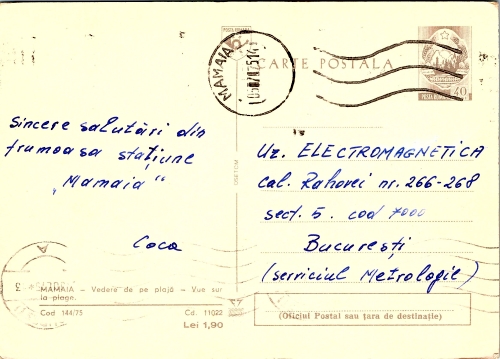 CARTE POSTALA
MAMAIA
40
Sincere salutări din
frumoasa stațiune
„Mamaia“
Coca
Uz. ELECTROMAGNETICA
cal. Rahovei nr. 266-268
sect. 5. cod 7000
București
(serviciul Metrologie)
MAMAIA – Vedere de pe plajă – Vue sur
la plage.
Cod 144/75 Cd. 11022
Lei 1,90
(Oficiul Postal sau țara de destinație)